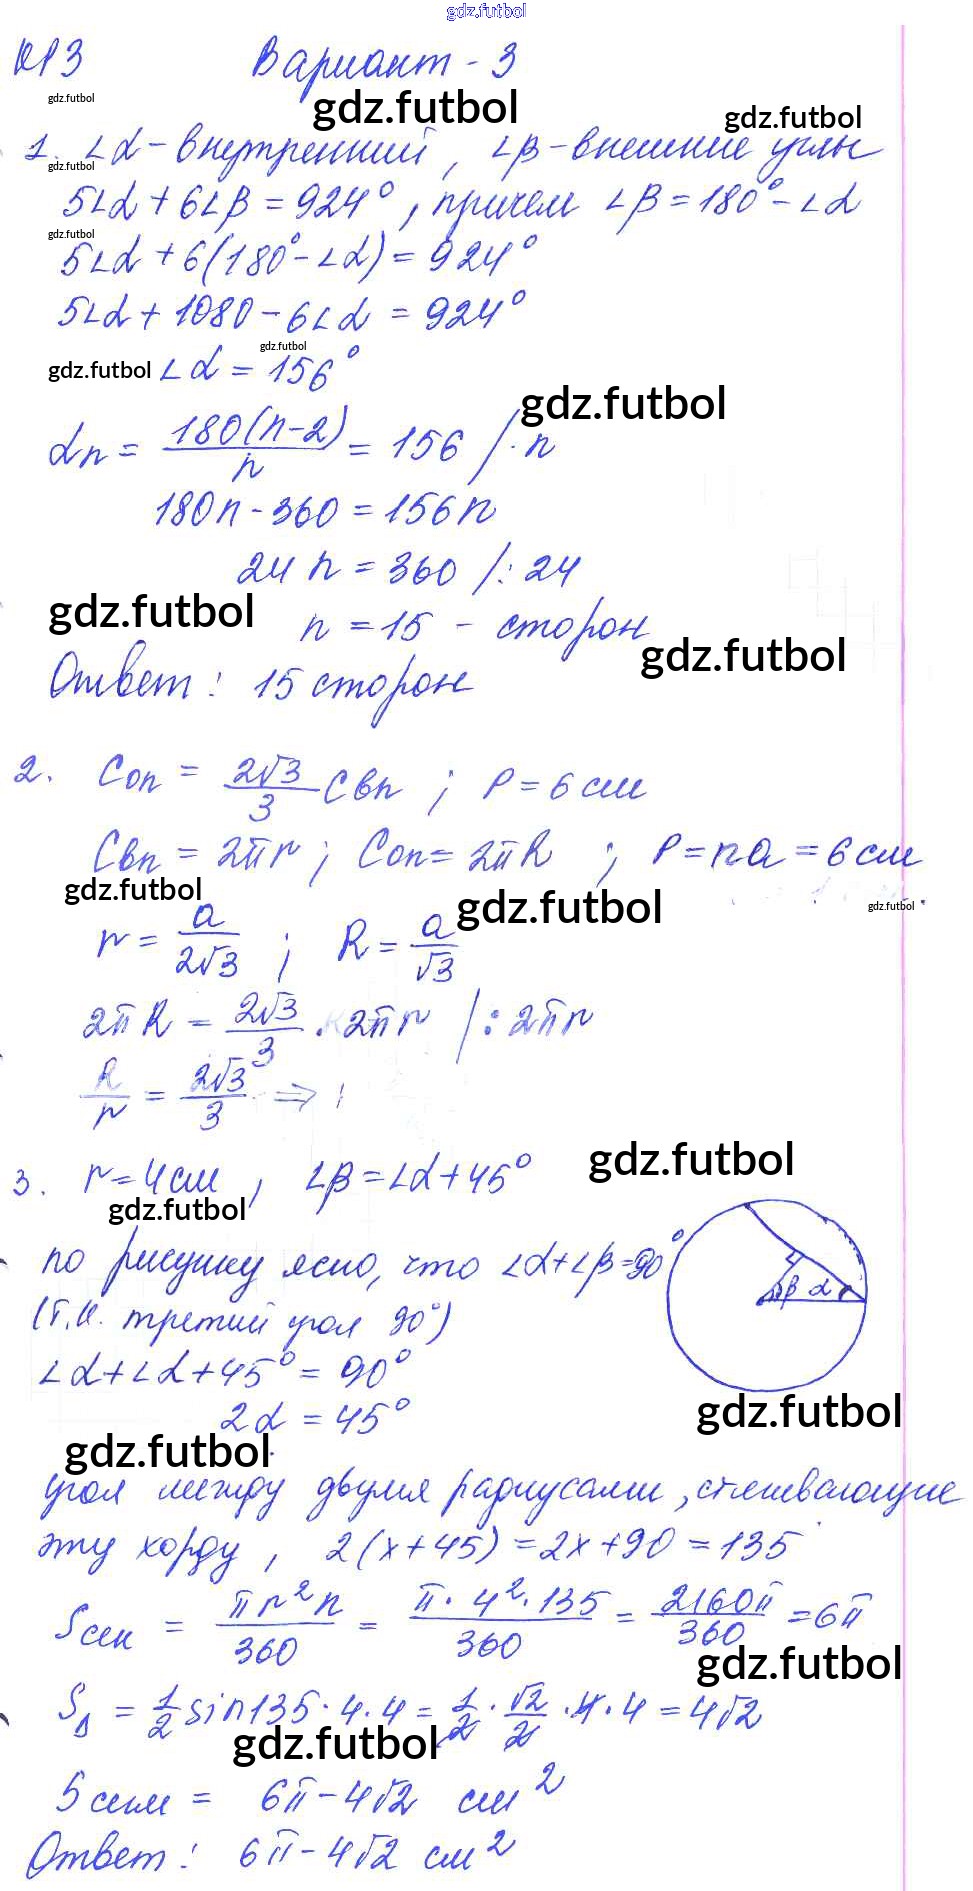 gdz.futbol
КР3 Вариант - 3
gdz.futbol
gdz.futbol
gdz.futbol
1. ∠α - внутренний, ∠β - внешние углы
gdz.futbol
5∠α + 6∠β = 924°, причем ∠β = 180° - ∠α
gdz.futbol
5∠α + 6(180° - ∠α) = 924°
5∠α + 1080 - 6∠α = 924°
gdz.futbol
gdz.futbol ∠α = 156°
gdz.futbol
αn = 180(n-2)/n = 156 /· n
180n - 360 = 156n
24n = 360 /: 24
gdz.futbol
n = 15 - сторон
gdz.futbol
Ответ: 15 сторон
2. Cоп = 2√3/3 Cвп ; P = 6 см
Cвп = 2πr ; Cоп = 2πR ; P = na = 6 см
gdz.futbol
gdz.futbol
gdz.futbol
r = a/2√3 ; R = a/√3
2πR = 2√3/3 · 2πr /: 2πr
R/r = 2√3/3 ⇒
gdz.futbol
3. r = 4 см, ∠β = ∠α + 45°
gdz.futbol
по рисунку ясно, что ∠α + ∠β = 90°
β α
(т.к. третий угол 90°)
∠α + ∠α + 45° = 90°
2α = 45°
gdz.futbol
gdz.futbol
угол между двумя радиусами, стягивающие
эту хорду, 2(x + 45) = 2x + 90 = 135
Sсек = πr²n/360 = π · 4² · 135/360 = 2160π/360 = 6π
gdz.futbol
S△ = 1/2 sin135 · 4 · 4 = 1/2 · √2/2 · 4 · 4 = 4√2
gdz.futbol
Sсегм = 6π - 4√2 см²
Ответ: 6π - 4√2 см²